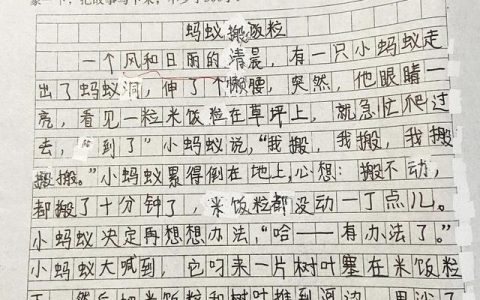 蚂蚁搬饭粒
一个风和日丽的清晨，有一只小蚂蚁走
出了蚂蚁洞，伸了个懒腰，突然，他眼睛一
亮，看见一粒米饭粒在草坪上，就急忙爬过
去，“到了”小蚂蚁说，“我搬，我搬，我搬
搬搬。”小蚂蚁累得倒在地上，心想：搬不动，
都搬了十分钟了，米饭粒都没动一丁点儿。
小蚂蚁决定再想想办法，“哈——有办法了。”
小蚂蚁大喊到，它呀来一片树叶塞在米饭粒
下，然后把米饭粒和树叶推到河边，